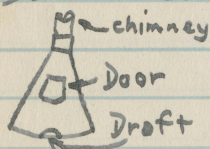 chimney
Door
Draft